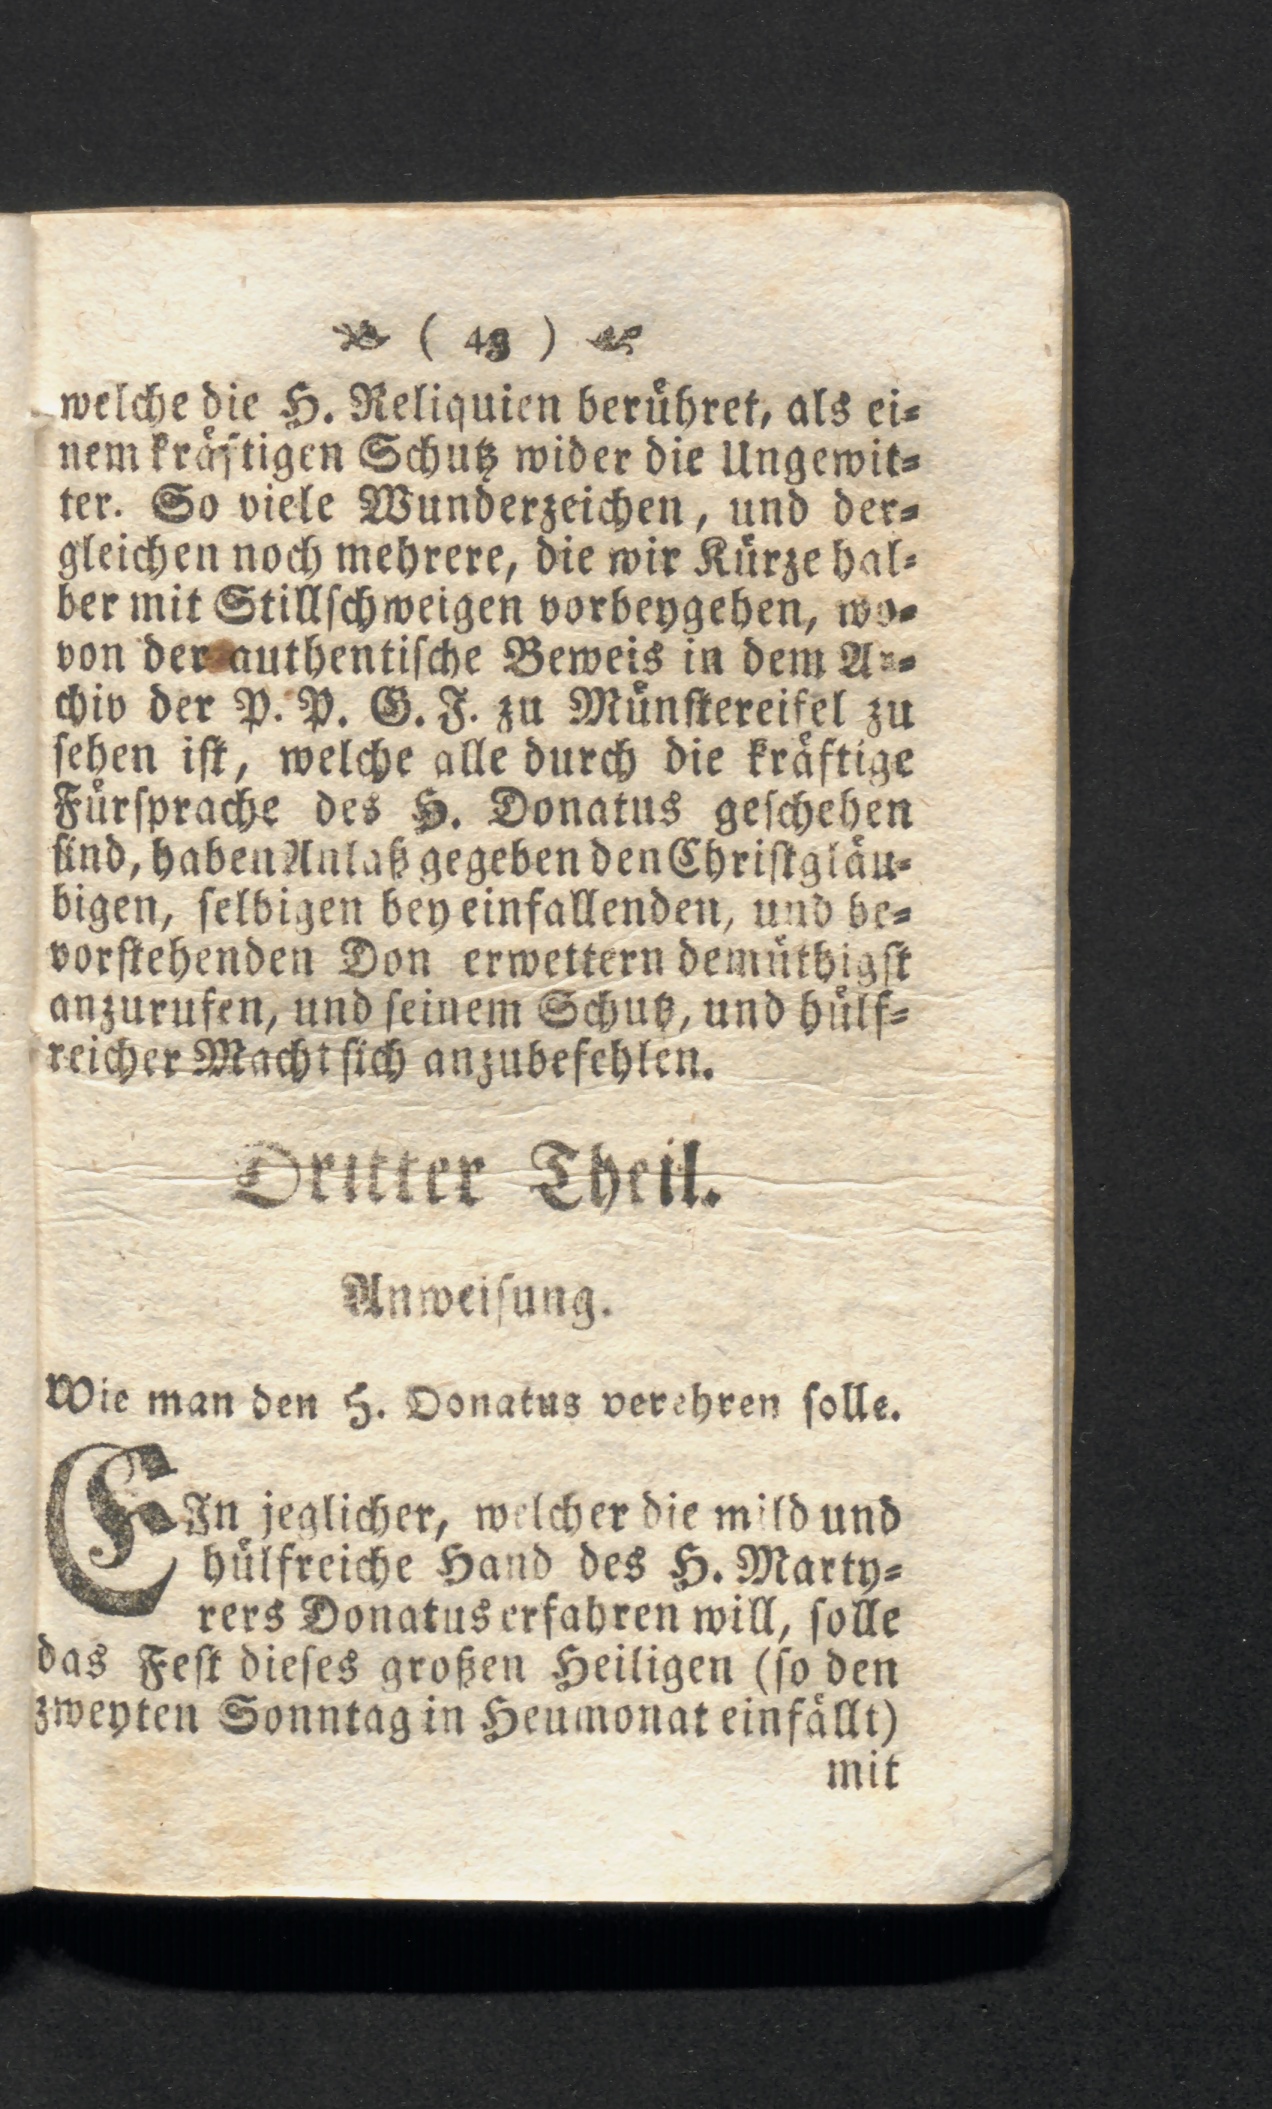 ( 43 )
welche die H. Reliquien berühret, als ei-
nem kräftigen Schutz wider die Ungewit-
ter. So viele Wunderzeichen, und der-
gleichen noch mehrere, die wir Kürze hal-
ber mit Stillschweigen vorbeygehen, wo-
von der authentische Beweis in dem Ar-
chiv der P. P. G. J. zu Münstereifel zu
sehen ist, welche alle durch die kräftige
Fürsprache des H. Donatus geschehen
sind, haben Anlaß gegeben den Christgläu-
bigen, selbigen bey einfallenden, und be-
vorstehenden Don erwettern demüthigst
anzurufen, und seinem Schutz, und hülf-
reicher Macht sich anzubefehlen.
Dritter Theil.
Anweisung.
Wie man den H. Donatus verehren solle.
EIn jeglicher, welcher die mild und
hülfreiche Hand des H. Marty-
rers Donatus erfahren will, solle
das Fest dieses großen Heiligen (so den
zweyten Sonntag in Heumonat einfällt)
mit